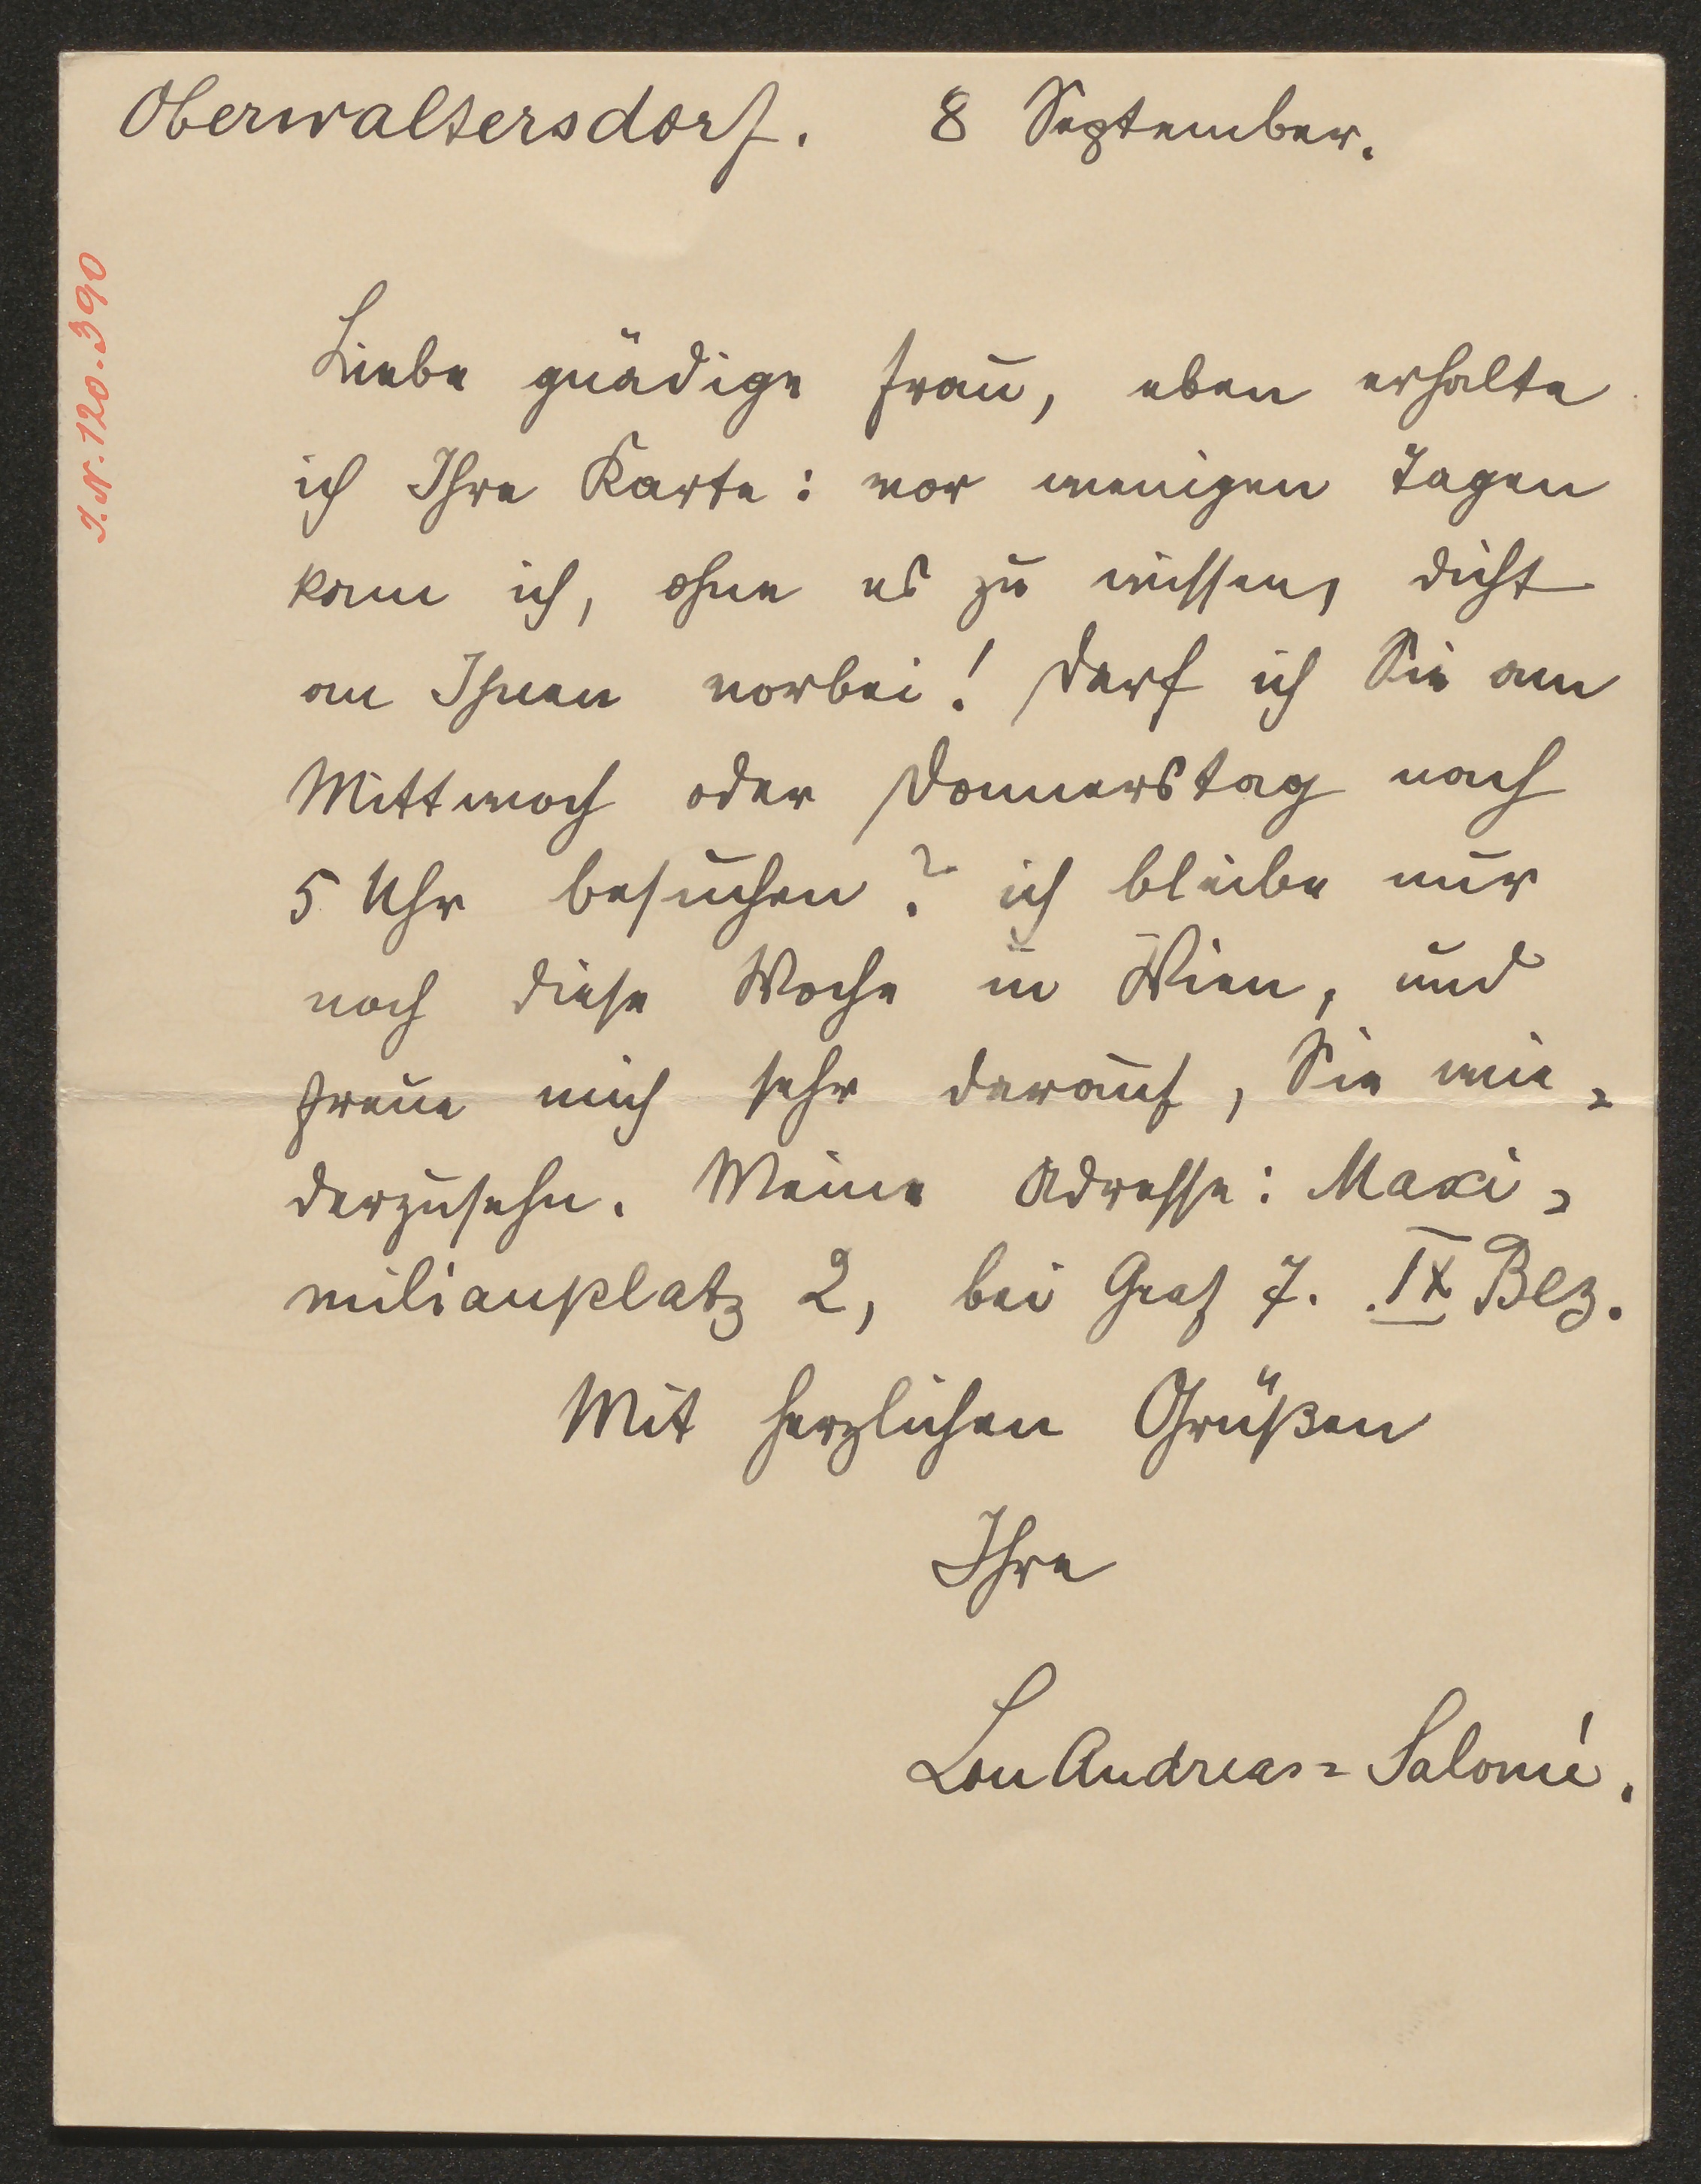 Oberwaltersdorf. 8 September.
I.N. 120.390
Liebe gnädige Frau, eben erhalte
ich Ihre Karte: vor wenigen Tagen
kam ich, ohne es zu wissen, dicht
an Ihnen vorbei! Darf ich Sie am
Mittwoch oder Donnerstag nach
5 Uhr besuchen? ich bleibe nur
noch diese Woche in Wien, und
freue mich sehr darauf, Sie wie=
derzusehn. Meine Adresse: Maxi=
milianplatz 2, bei Graf 7. IX Bez.
Mit herzlichen Grüßen
Ihre
Lou Andreas=Salomé.